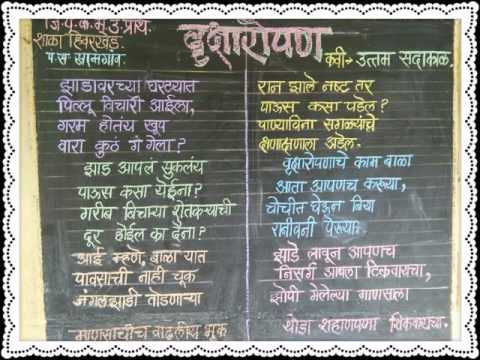 जि.प.क.म.उ.प्राथ.
शाळा हिवरखेड.
पं.स. खामगांव.
वृक्षारोपण
कवी- उत्तम सदाकाळ.
झाडावरच्या घरट्यात
पिल्लू विचारी आईला,
गरम होतंय खूप
वारा कुठं गं गेला?
झाड आपलं सुकलंय
पाऊस कसा येईना?
गरीब बिचाऱ्या शेतकऱ्याची
दूर होईल का दैना?
आई म्हणे, बाळा यात
पावसाची नाही चूक
जंगलझाडी तोडणाऱ्या
माणसाचीच वाढलीय भूक
रान झाले नष्ट तर
पाऊस कसा पडेल?
पाण्याविना सगळ्यांचे
क्षणाक्षणाला अडेल.
वृक्षारोपणाचे काम बाळा
आता आपणच करूया,
चोचीत घेऊन बिया
रानीवनी पेरूया.
झाडे लावून आपणच
निसर्ग आपला टिकवायचा,
झोपी गेलेल्या माणसाला
थोडा शहाणपणा शिकवायचा.